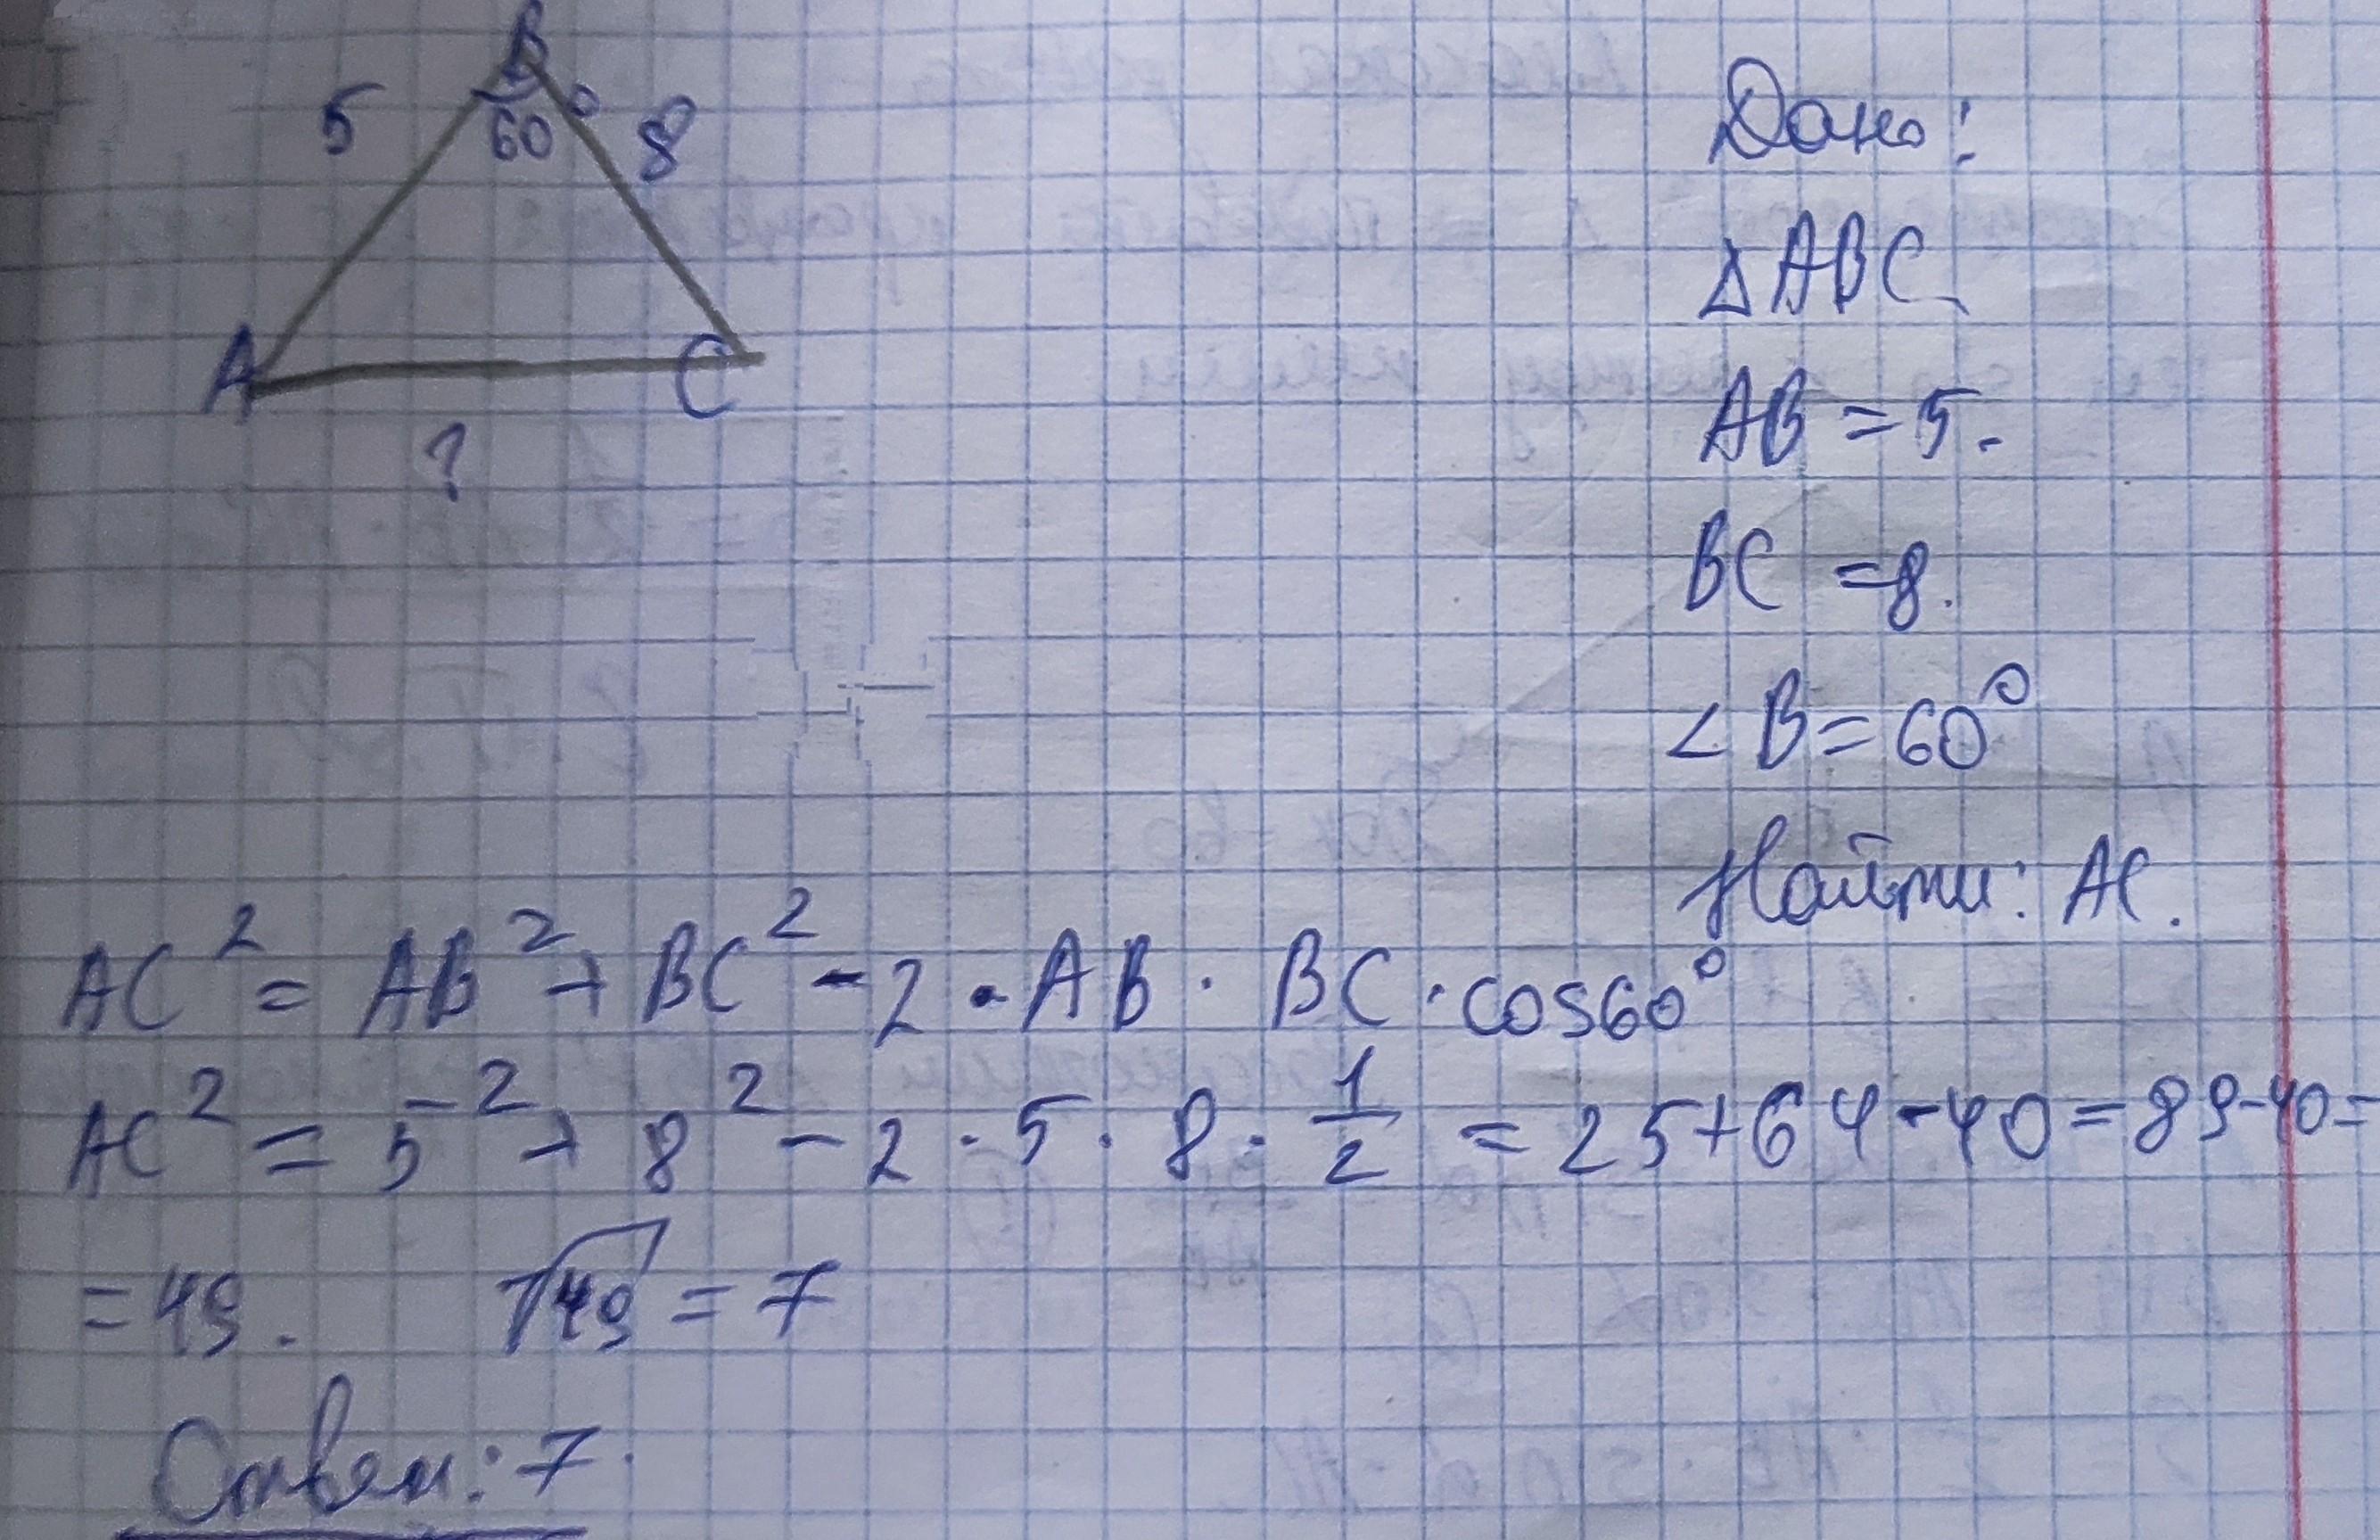 B
5
60°
8
A
C
?
Дано:
△ABC
AB = 5.
BC = 8.
∠B = 60°
Найти: AC.
AC² = AB² + BC² - 2 · AB · BC · cos60°
AC² = 5² + 8² - 2 · 5 · 8 · 1/2 = 25 + 64 - 40 = 89 - 40 =
= 49. √49 = 7
Ответ: 7.